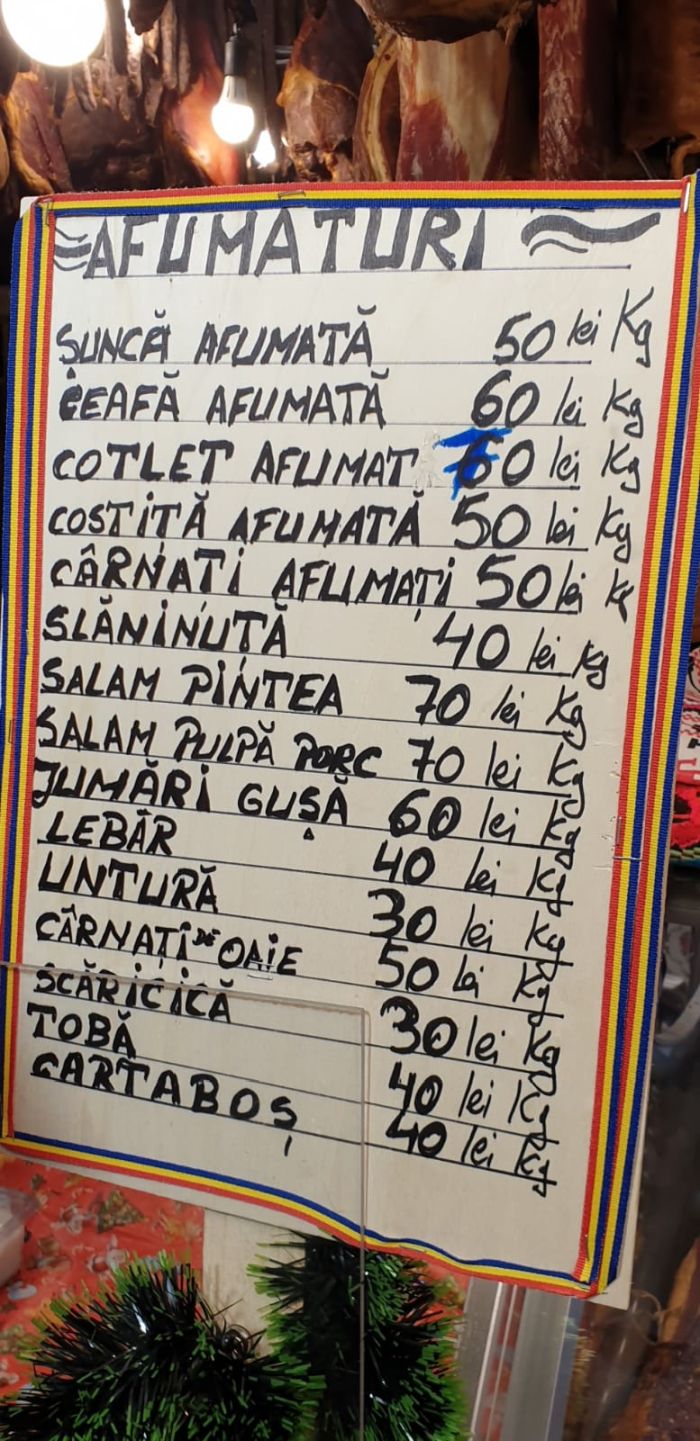 AFUMĂTURI
ȘUNCĂ AFUMATĂ 50 lei Kg
CEAFĂ AFUMATĂ 60 lei Kg
COTLET AFUMAT 60 lei Kg
COSTIȚĂ AFUMATĂ 50 lei Kg
CÂRNAȚI AFUMAȚI 50 lei K
SLĂNINUȚĂ 40 lei Kg
SALAM PINTEA 70 lei Kg
SALAM PULPĂ PORC 70 lei Kg
JUMĂRI GUȘĂ 60 lei Kg
LEBĂR 40 lei Kg
UNTURĂ 30 lei Kg
CÂRNAȚI DE OAIE 50 lei Kg
SCĂRICICĂ 30 lei Kg
TOBĂ 40 lei Kg
CARTABOȘ 40 lei Kg